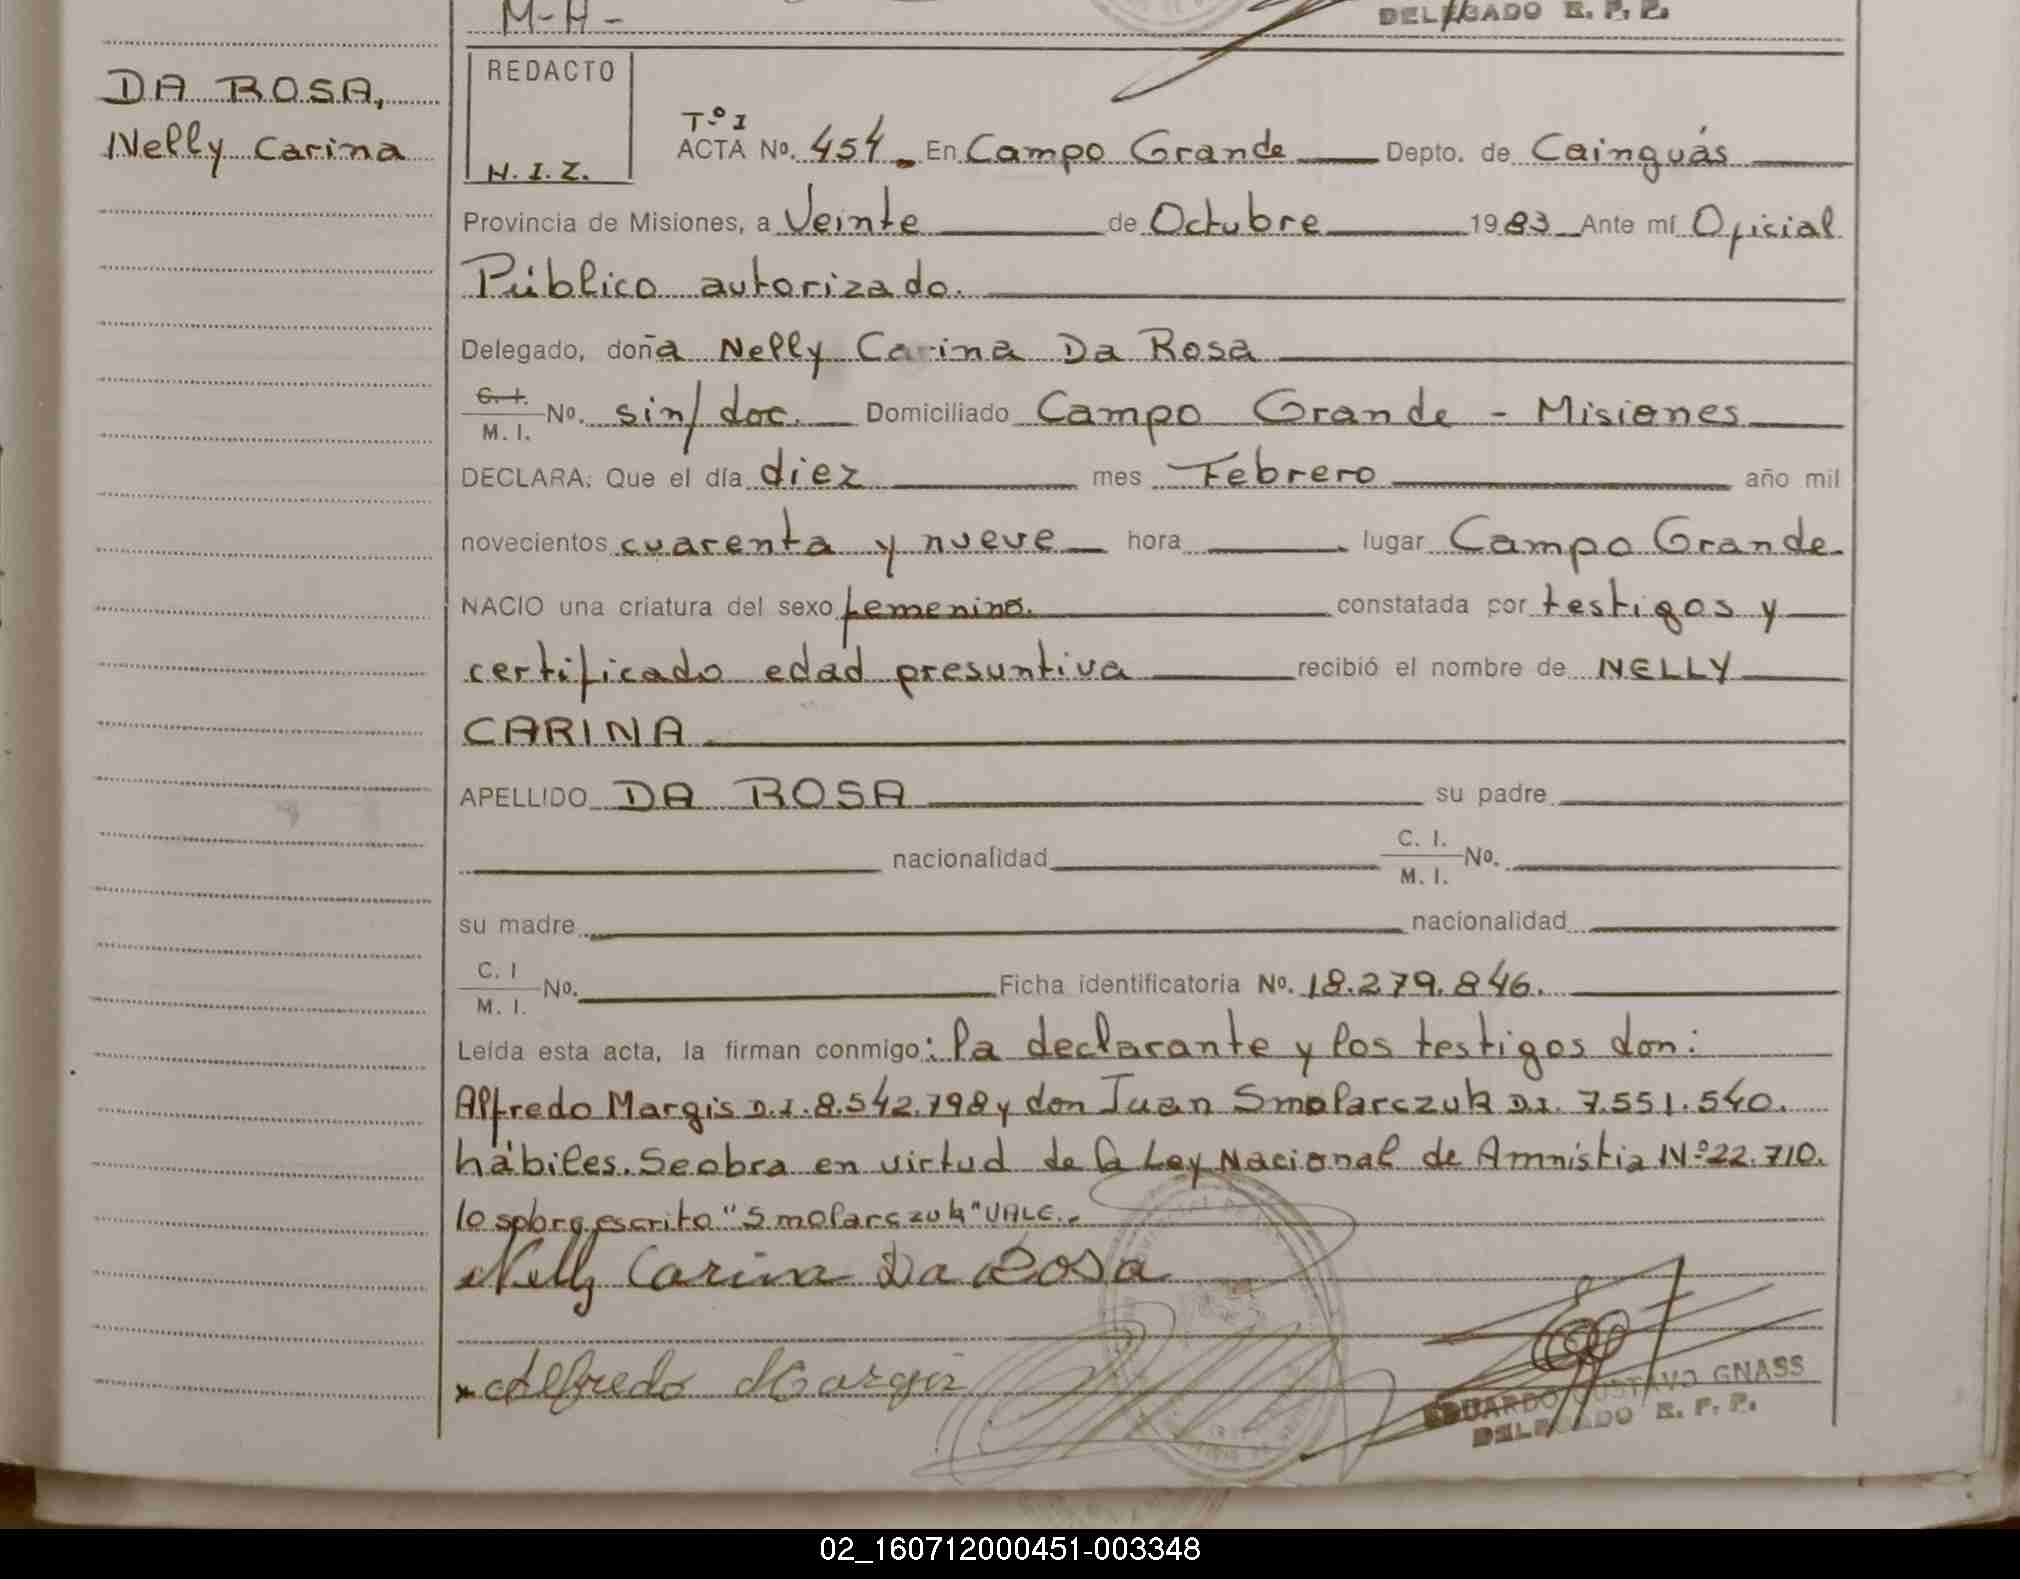 M-H-
DELEGADO E. P. P.
DA ROSA,
Nelly Carina
REDACTO
N.I.Z.
Tº I
ACTA No. 454. En Campo Grande Depto. de Cainguás
Provincia de Misiones, a Veinte de Octubre 1983 Ante mí Oficial
Público autorizado.
Delegado, doña Nelly Carina Da Rosa
C. I. / M. I. No. sin/doc. Domiciliado Campo Grande - Misiones
DECLARA: Que el día diez mes Febrero año mil
novecientos cuarenta y nueve hora lugar Campo Grande
NACIO una criatura del sexo femenino. constatada por testigos y
certificado edad presuntiva recibió el nombre de NELLY
CARINA
APELLIDO DA ROSA su padre
nacionalidad C. I. / M. I. No.
su madre nacionalidad
C. I / M. I. No. Ficha identificatoria No. 18.279.846.
Leída esta acta, la firman conmigo: la declarante y los testigos don:
Alfredo Margis D.I. 8.542.798 y don Juan Smolarczuk D.I. 7.551.540.
hábiles. Se obra en virtud de la Ley Nacional de Amnistia Nº 22.710.
lo sobre escrito "Smolarczuk" VALE.-
Nelly Carina Da Rosa
Alfredo Margis
EDUARDO GUSTAVO GNASS
DELEGADO E. P. P.
02_160712000451-003348